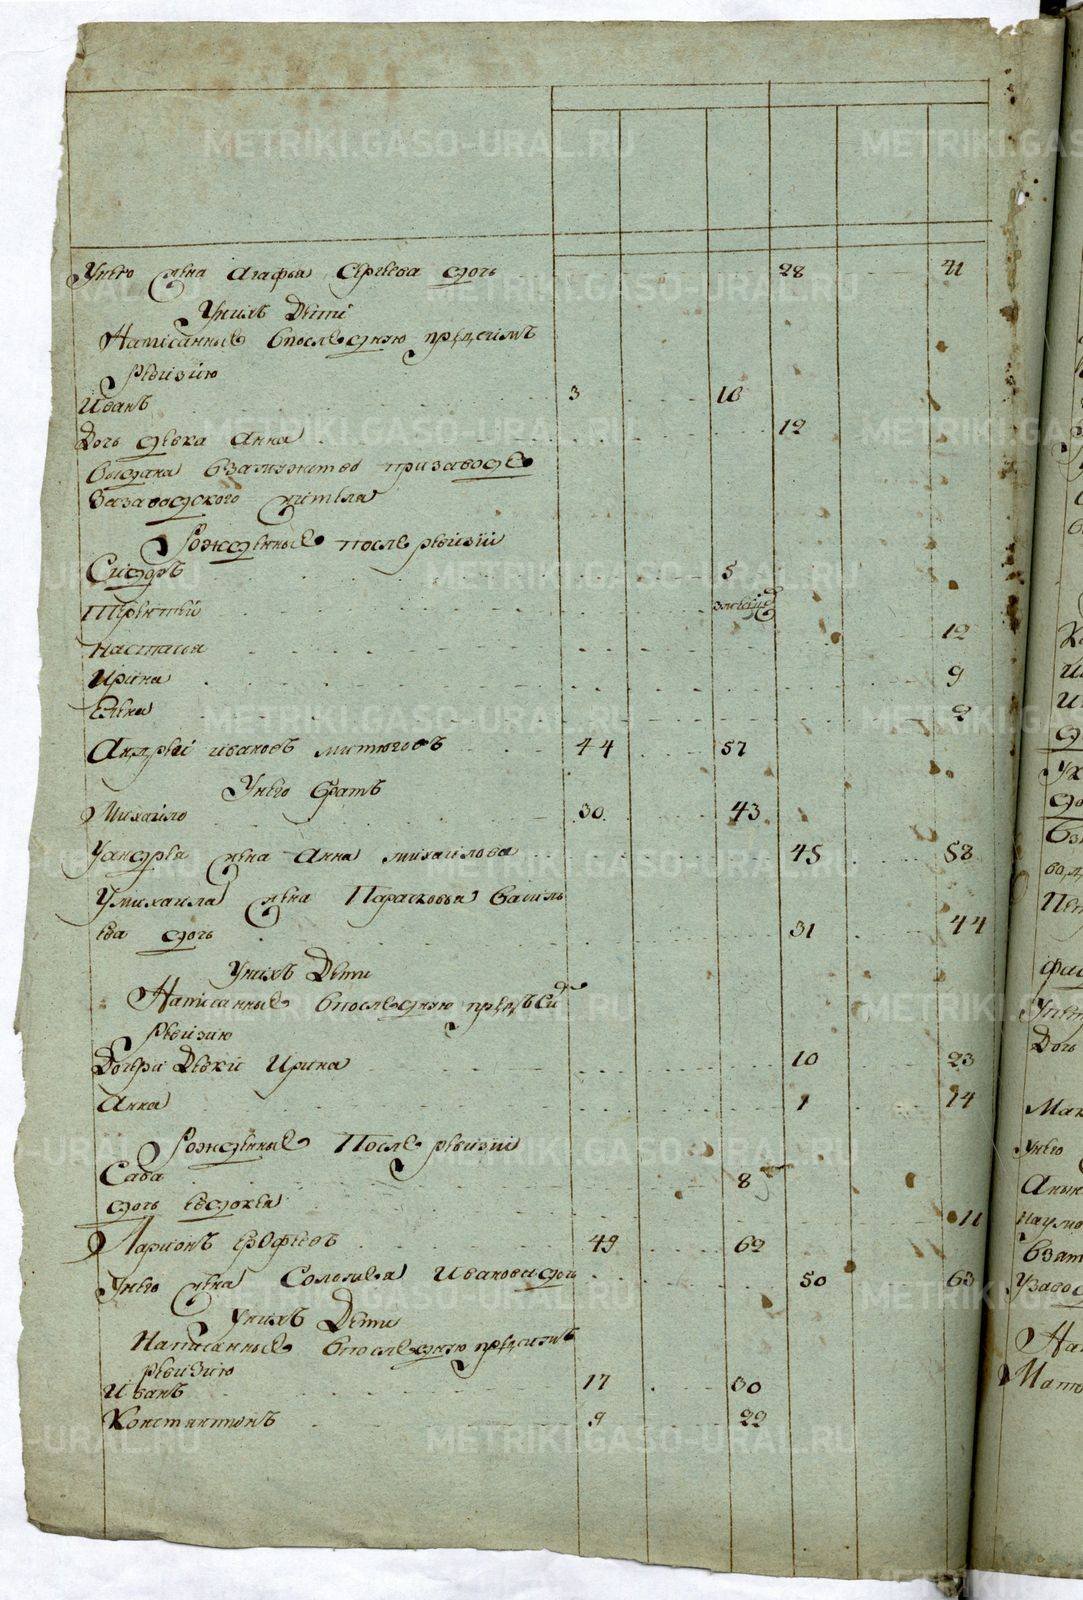 Унего жена Агафья Сергѣева дочь 28 41
Унихъ Дети
Написанные впоследнюю предсимъ
ревизию
Иванъ 3 16
Дочь девка Анна 12
выдана взамужство призаводе
Зазаводского жителя
Рожденные после ревизии
Сидоръ 5
Терентей
Настасья 12
Ирина 9
Елена 2
Андрей ивановъ митюговъ 44 57
Унего братъ
Михайло 30 43
Уандрея жена Анна михаилова 45 58
Умихаила жена Парасковья василь
ева дочь 31 44
Унихъ Дети
Написанные впоследнюю предъ
ревизию
Дочери Девки Ирина 10 23
Анна 1 14
Рожденные После ревизии
Сава 8
дочь евдокея 11
Ларионъ ерофеевъ 49 62
Унего жена Соломея Иванова дочь 50 63
унихъ Дети
Написанные впоследнюю предсимъ
ревизию
Иванъ 17 30
Константинъ 9 22
METRIKI.GASO-URAL.RU